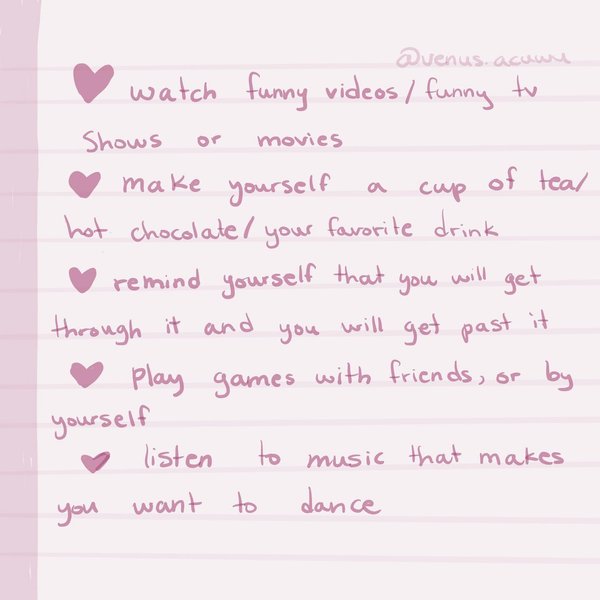 @venus.acuwu
watch funny videos/funny tv
Shows or movies
make yourself a cup of tea/
hot chocolate/your favorite drink
remind yourself that you will get
through it and you will get past it
Play games with friends, or by
yourself
listen to music that makes
you want to dance